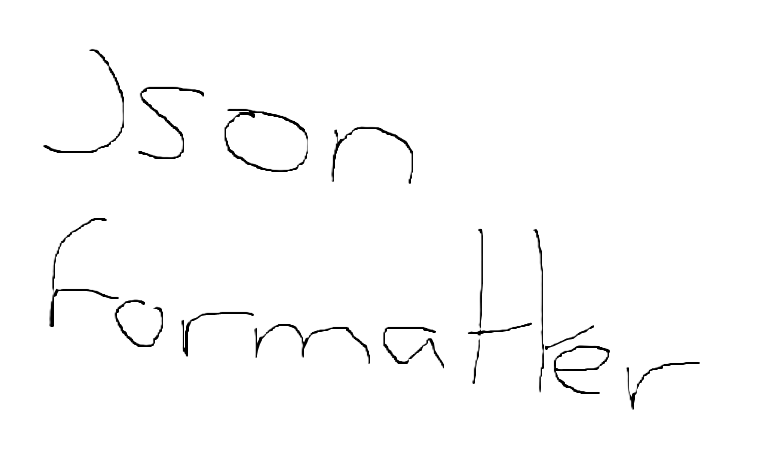 Json
formatter